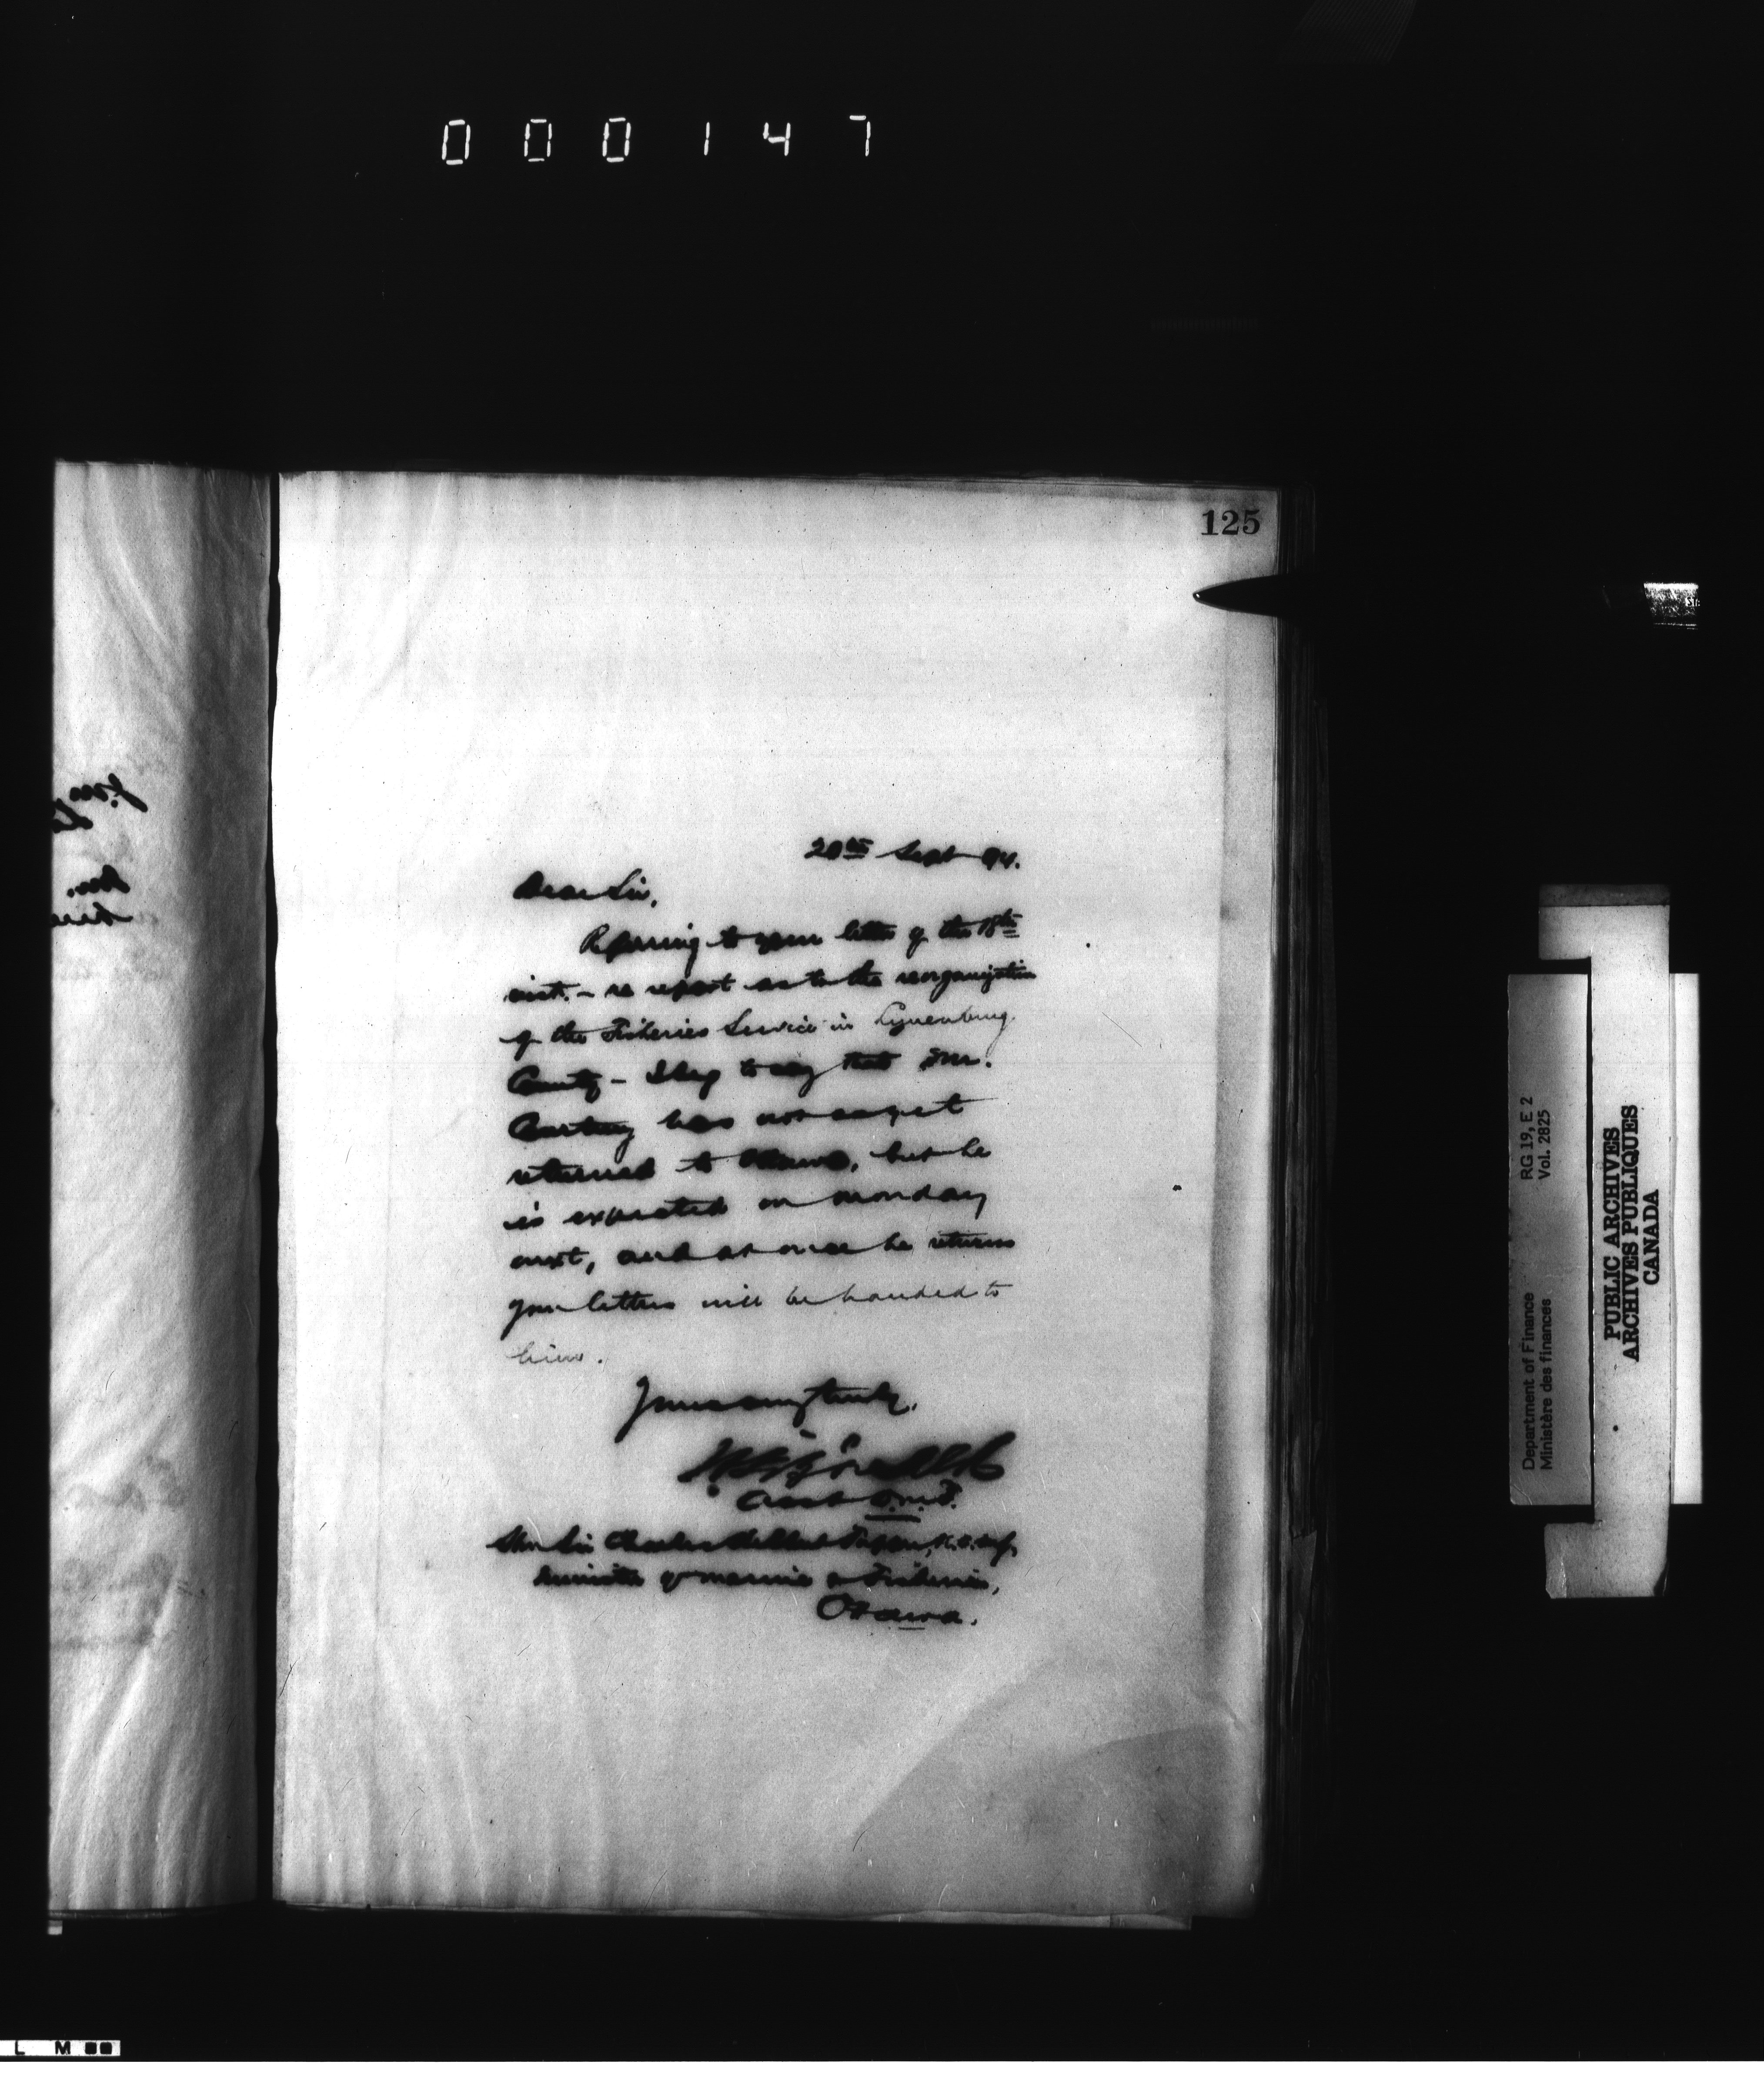 000147
125
20th Sept 94.
Dear Sir,
Referring to your letter of the 18th
inst. - re report as to the reorganization
of the Fisheries Service in Lunenburg
County - I beg to say that Mr.
Courtney has not as yet
returned to Ottawa, but he
is expected on Monday
next, and at once he returns
your letters will be handed to
him.
Yours very truly,
Asst D.M.F.
Sir Charles Hibbert Tupper, K.C.M.G.
Minister of Marine & Fisheries,
Ottawa.
Department of Finance RG 19, E 2
Ministère des finances Vol. 2825
PUBLIC ARCHIVES
ARCHIVES PUBLIQUES
CANADA
L M